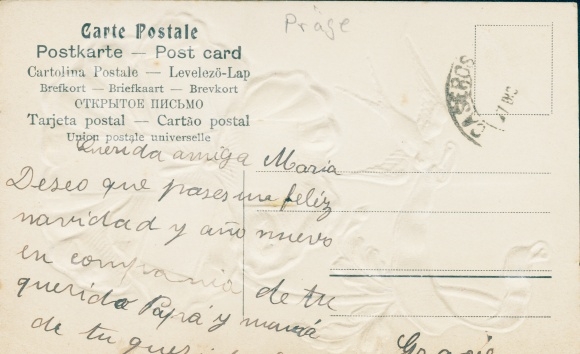 Präge
Carte Postale
Postkarte — Post card
Cartolina Postale — Levelező-Lap
Brefkort — Briefkaart — Brevkort
ОТКРЫТОЕ ПИСЬМО
Tarjeta postal — Cartão postal
Union postale universelle
CASEROS
Querida amiga Maria
Deseo que pases un feliz
navidad y año nuevo
en compania de tu
querido Papá y mamá
de tu